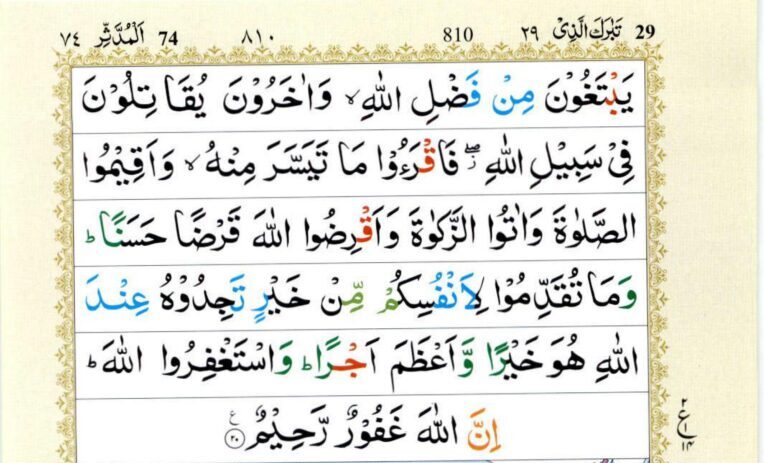 29 تَبٰرَكَ الَّذِىْ ٢٩ 810 ٨١٠ 74 اَلْمُدَّثِّر ٧٤
يَبْتَغُوْنَ مِنْ فَضْلِ اللّٰهِ ۙ وَاٰخَرُوْنَ يُقَاتِلُوْنَ
فِىْ سَبِيْلِ اللّٰهِ ۖ فَاقْرَءُوْا مَا تَيَسَّرَ مِنْهُ ۙ وَاَقِيْمُوا
الصَّلٰوةَ وَاٰتُوا الزَّكٰوةَ وَاَقْرِضُوا اللّٰهَ قَرْضًا حَسَنًا ؕ
وَمَا تُقَدِّمُوْا لِاَنْفُسِكُمْ مِّنْ خَيْرٍ تَجِدُوْهُ عِنْدَ
اللّٰهِ هُوَ خَيْرًا وَّاَعْظَمَ اَجْرًا ؕ وَاسْتَغْفِرُوا اللّٰهَ ؕ
اِنَّ اللّٰهَ غَفُوْرٌ رَّحِيْمٌ ۧ ٢٠
٢
ع
١٤